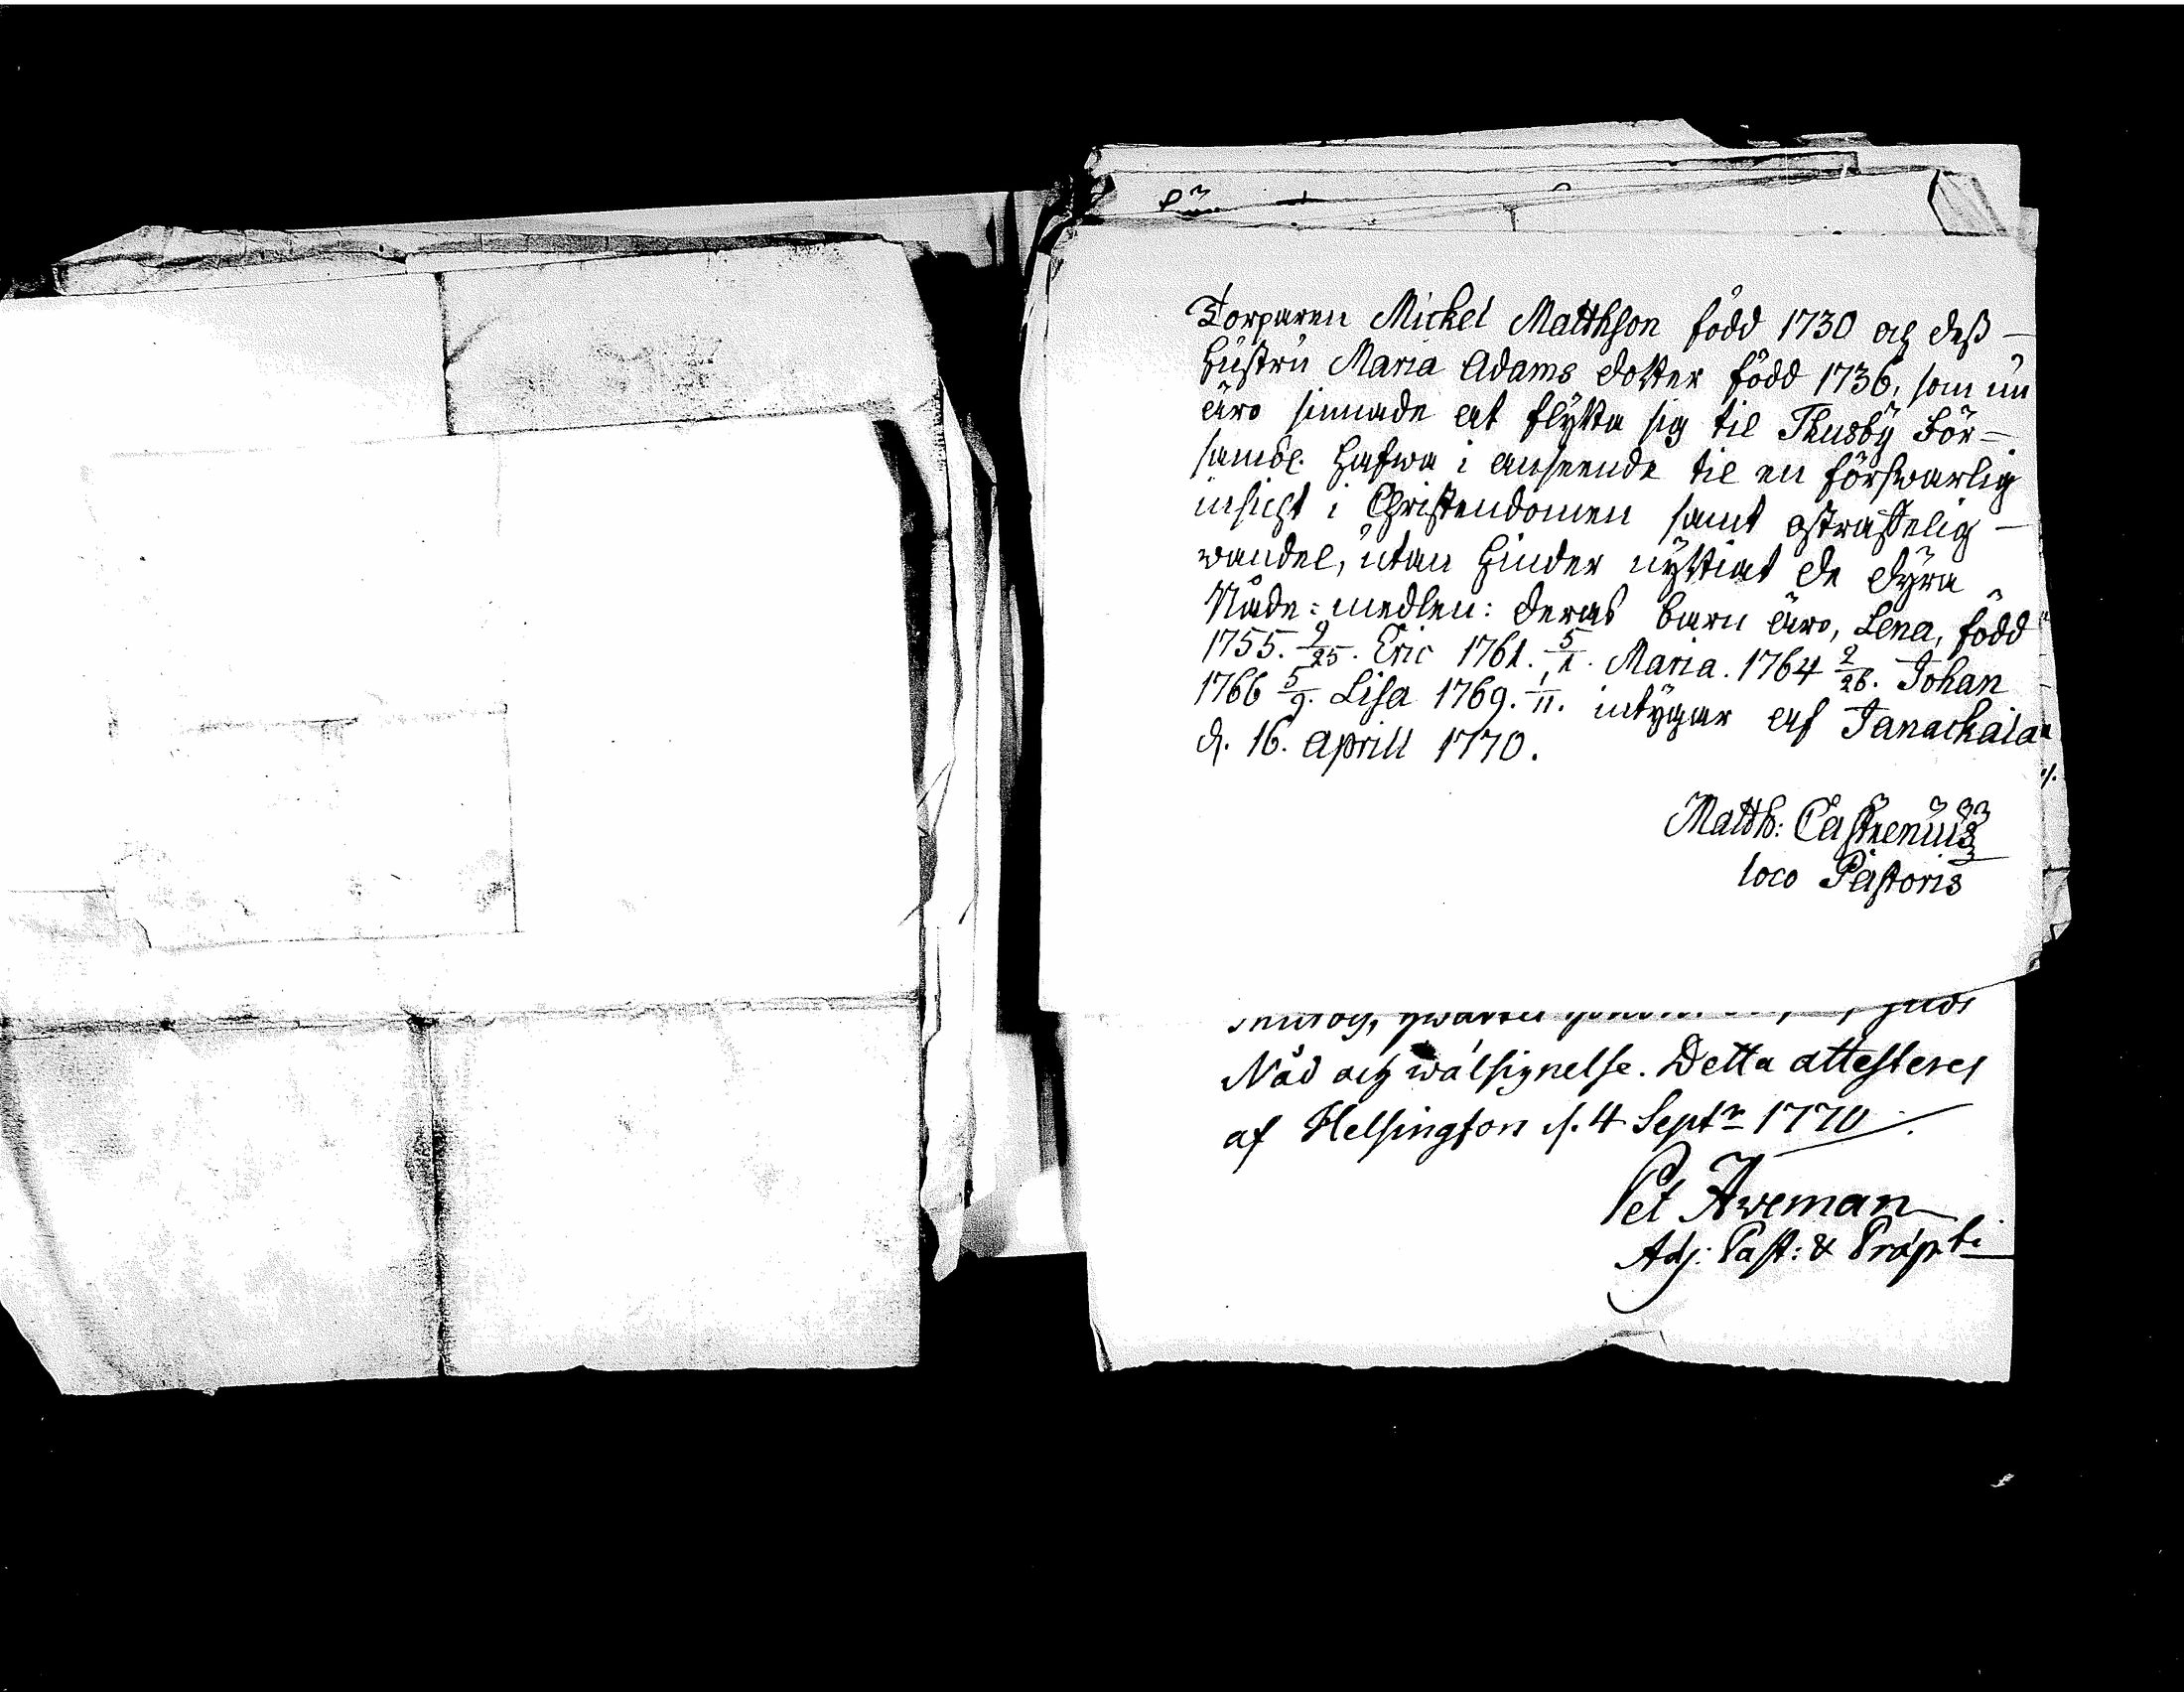 Torparen Michel Matthson född 1730 och dess
hustru Maria Adams dotter född 1736, som nu
äro sinnade at flytta sig til Thusby För=
saml. hafwa i anseende til en förswarlig
insicht i Christendomen samt ostraffelig
wandel, utan hinder nyttiat de dyra
Nåde=medlen: deras barn äro, Lena, född
1755. 9/25. Eric 1761. 5/1. Maria. 1764 2/28. Johan
1766 5/9. Lisa 1769. 1/11. intygar af Janackala
d. 16. Aprill 1770.
Matth: Castrenius
loco Pastoris
Nåd och wälsignelse. Detta attesteres
af Helsingfors d. 4 Septr 1770
Pet Aveman
Adj: Past: & Præp:ti